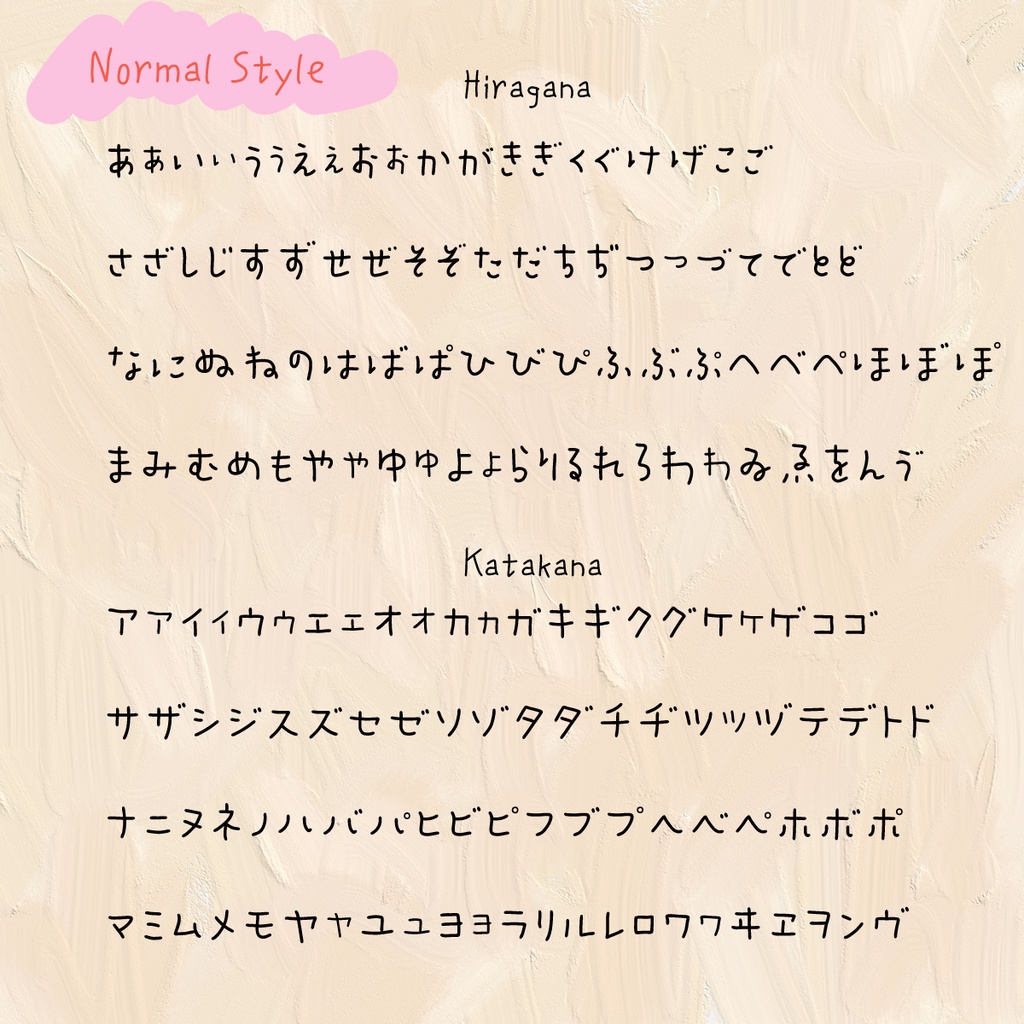 Normal Style
Hiragana
あぁいぃうぅえぇおぉかがきぎくぐけげこご
さざしじすずせぜそぞただちぢつっづてでとど
なにぬねのはばぱひびぴふぶぷへべぺほぼぽ
まみむめもやゃゆゅよょらりるれろわゎゐゑをんゔ
Katakana
アァイィウゥエェオォカヵガキギクグケヶゲコゴ
サザシジスズセゼソゾタダチヂツッヅテデトド
ナニヌネノハバパヒビピフブプヘベペホボポ
マミムメモヤャユュヨョラリルレロワヮヰヱヲンヴ